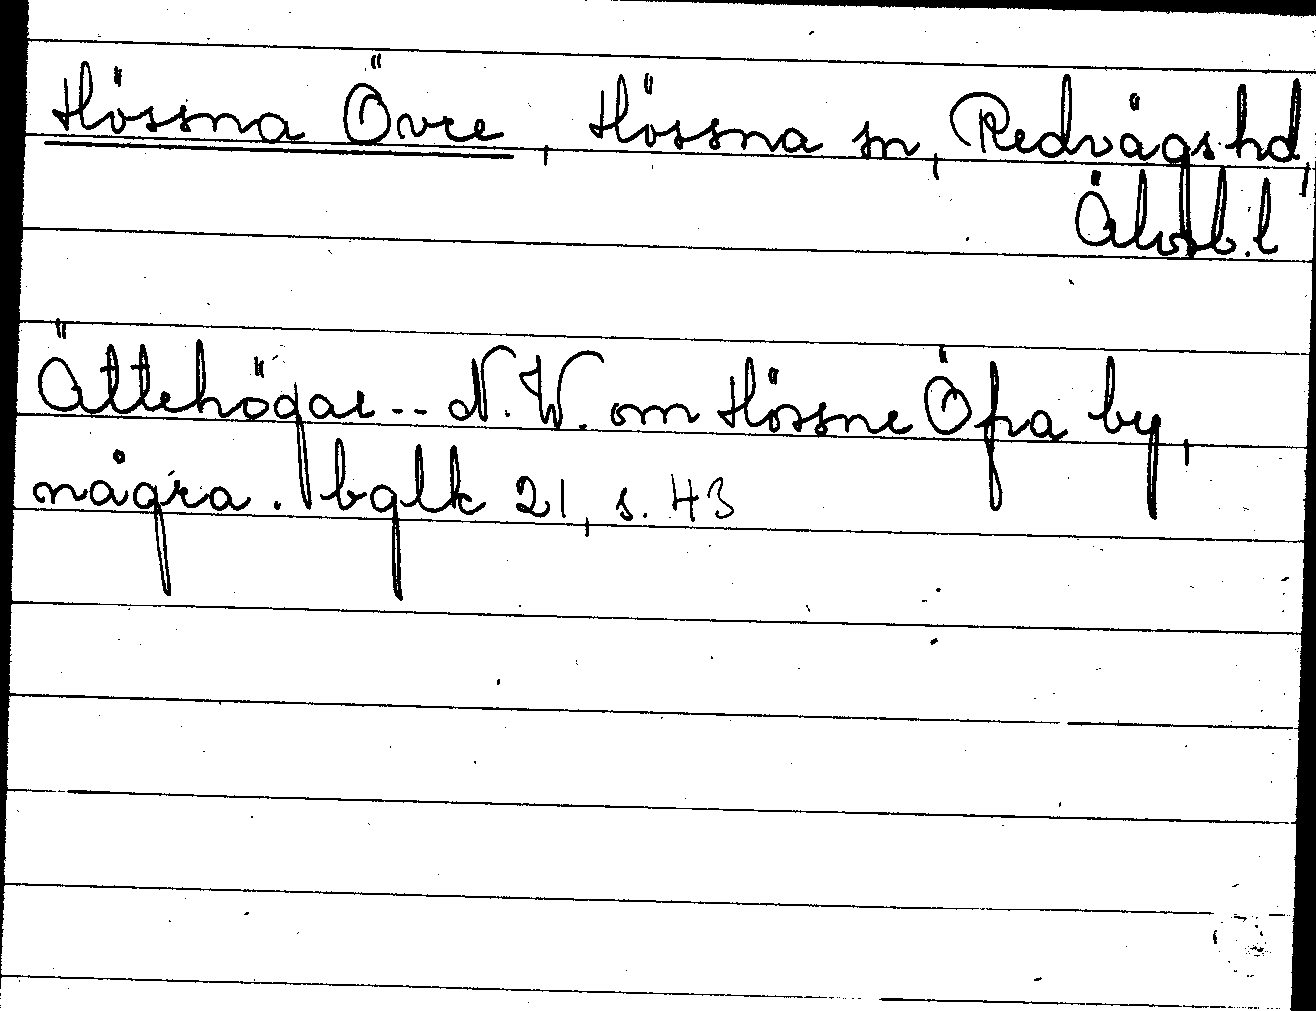 Hössna Övre, Hössna sn, Redvägs hd,
Älvsb. l
Ättehögar -- N.W. om Hössne Öfra by,
några. bglk 21, s. 43